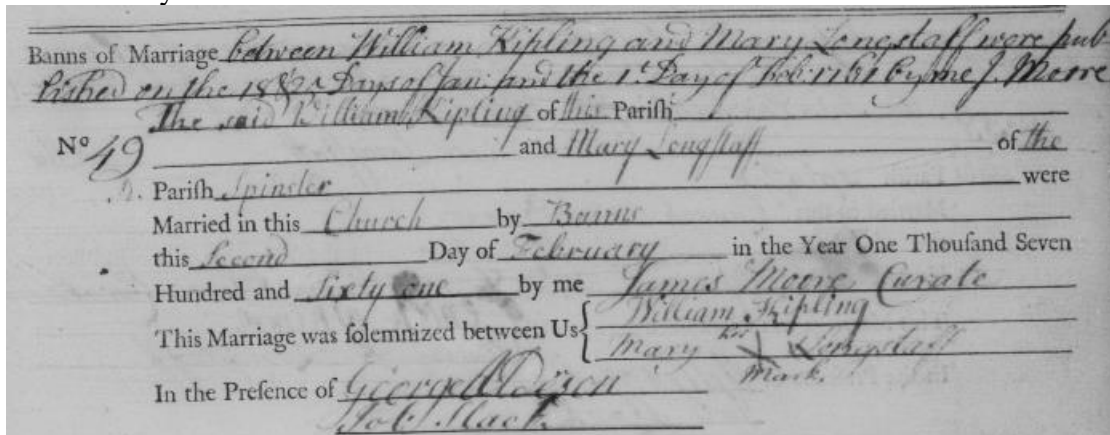 Banns of Marriage between William Kipling and Mary Longstaff were pub-
lished on the 18 & 25 Days of Jan: and the 1st Day of Feb: 1761 by me J. Moore
The said William Kipling of this Parish
No 49 and Mary Longstaff of the
Parish Spinster were
Married in this Church by Banns
this Second Day of February in the Year One Thousand Seven
Hundred and Sixty one by me James Moore Curate
This Marriage was solemnized between Us { William Kipling
Mary her X Longstaff
mark.
In the Presence of George Alderson
Slack